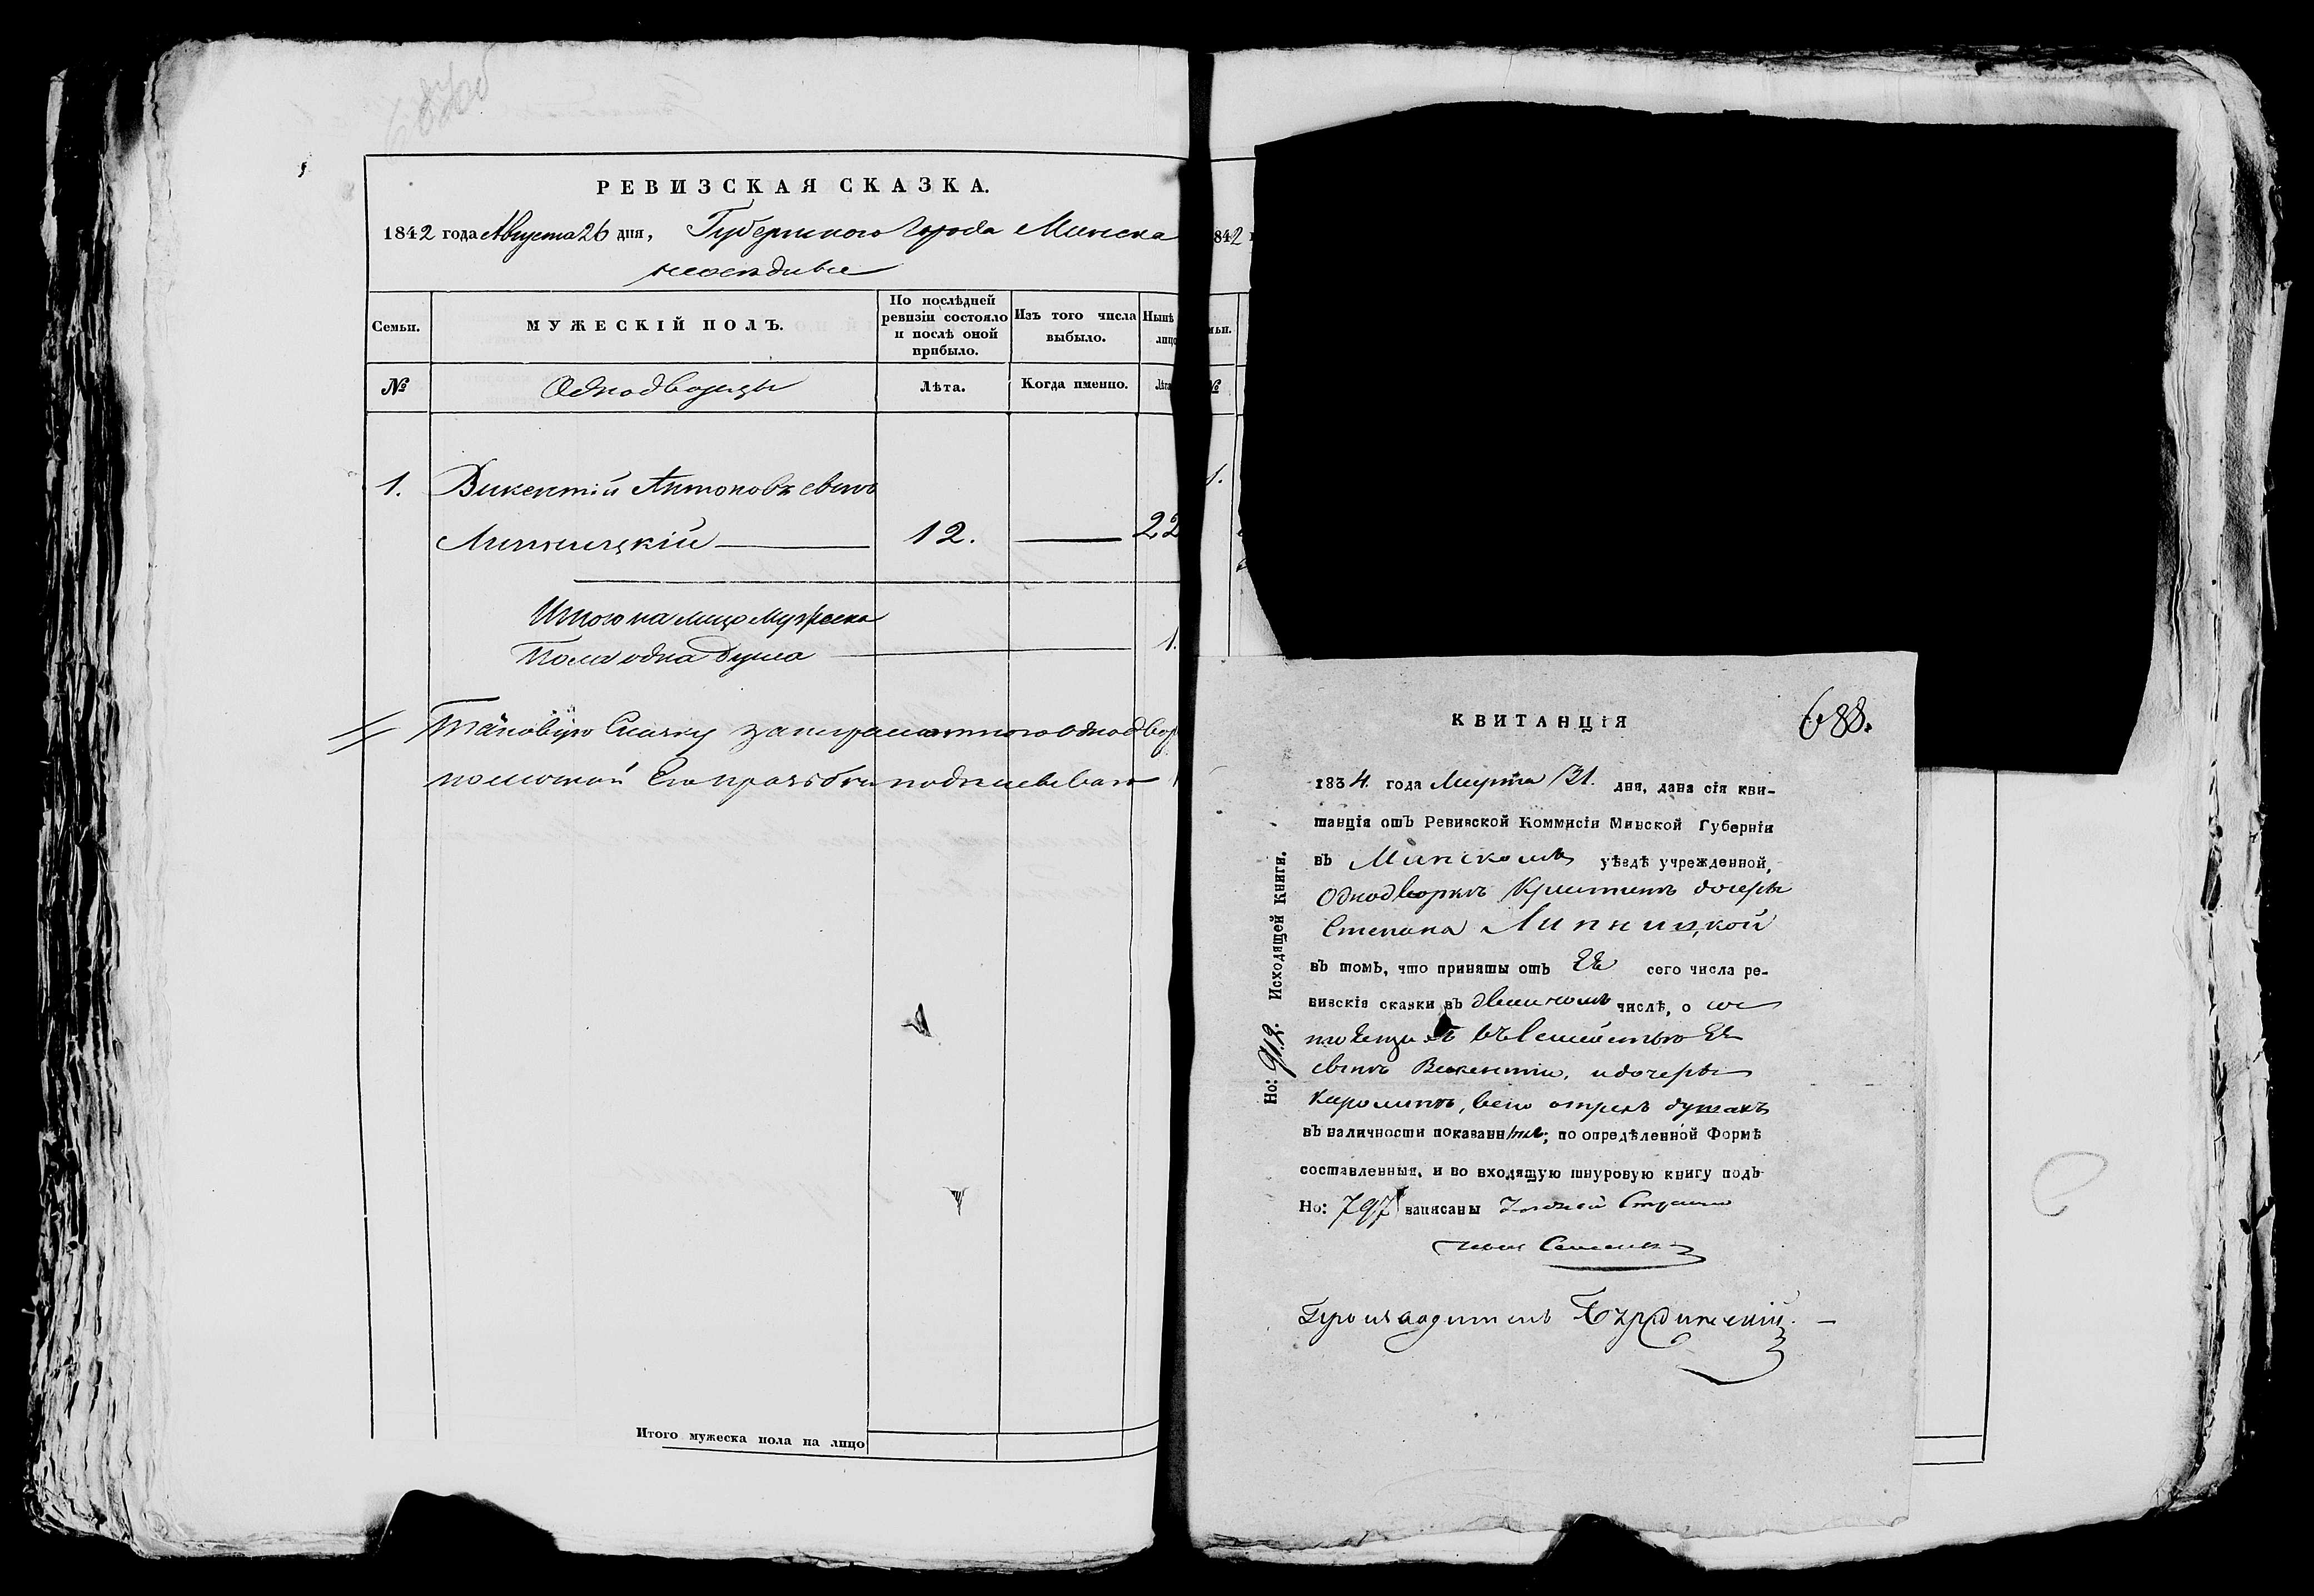 687об
РЕВИЗСКАЯ СКАЗКА.
1842 года Августа 26 дня, Губернскаго Города Минска
Семьи.
МУЖЕСКІЙ ПОЛЪ.
По послѣдней ревизіи состояло и послѣ оной прибыло.
Изъ того числа выбыло.
Нынѣ
лицо
№
Однодворцы
Лѣта.
Когда именно.
Лѣта
1.
Викентій Антоновъ сынъ
Липницкій
12.
22
Итого на лицо мужеска
Пола одна душа
1.
Таковую Сказку за неграмотного однодвор
по личной Его прозьбѣ подписывал
Итого мужеска пола на лицо
842
№
1.
КВИТАНЦІЯ
688.
1834. года Марта 31. дня, дана сія кви-
танція отъ Ревизской Коммисіи Минской Губерніи
въ Минскомъ уѣздѣ учрежденной,
Однодворкѣ Кристинѣ дочери
Степана Липницкой
въ томъ, что приняты отъ Ее сего числа ре-
визскія сказки въ двойномъ числѣ, о сос
тоящихъ въ Семействѣ Ее
сынѣ Викентіи, и дочери
Каролинѣ, всего о трехъ душахъ
въ наличности показанные, по опредѣленной Формѣ
составленныя, и во входящую шнуровую книгу подъ
Но: 797 записаны
Производитель
Но: 912. Исходящей Книги.